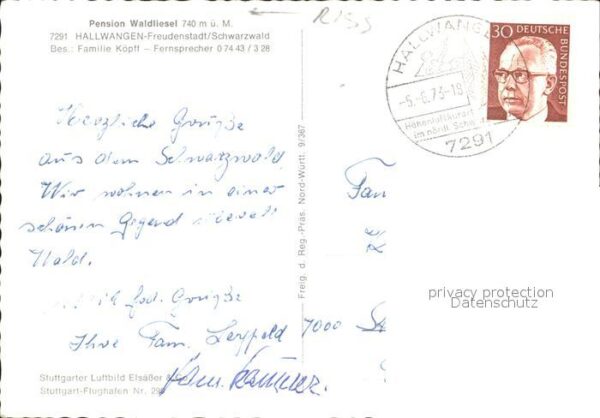 Pension Waldliesel 740 m ü. M.
7291 HALLWANGEN-Freudenstadt/Schwarzwald
Bes.: Familie Köpff - Fernsprecher 0 74 43 / 3 28
HALLWANGE
-5.-6.73-18
Höhenluftkurort
im nördl. Schw
7291
30 DEUTSCHE
BUNDESPOST
Herzliche Grüße
aus dem Schwarzwald
Wir wohnen in einer
schönen Gegend
Wald.
Grüße
Ihre Fam.
Fam
7000 St
Freig. d. Reg.-Präs. Nord-Württ. 9/367
privacy protection
Datenschutz
Stuttgarter Luftbild Elsäßer &
Stuttgart-Flughafen Nr. 29